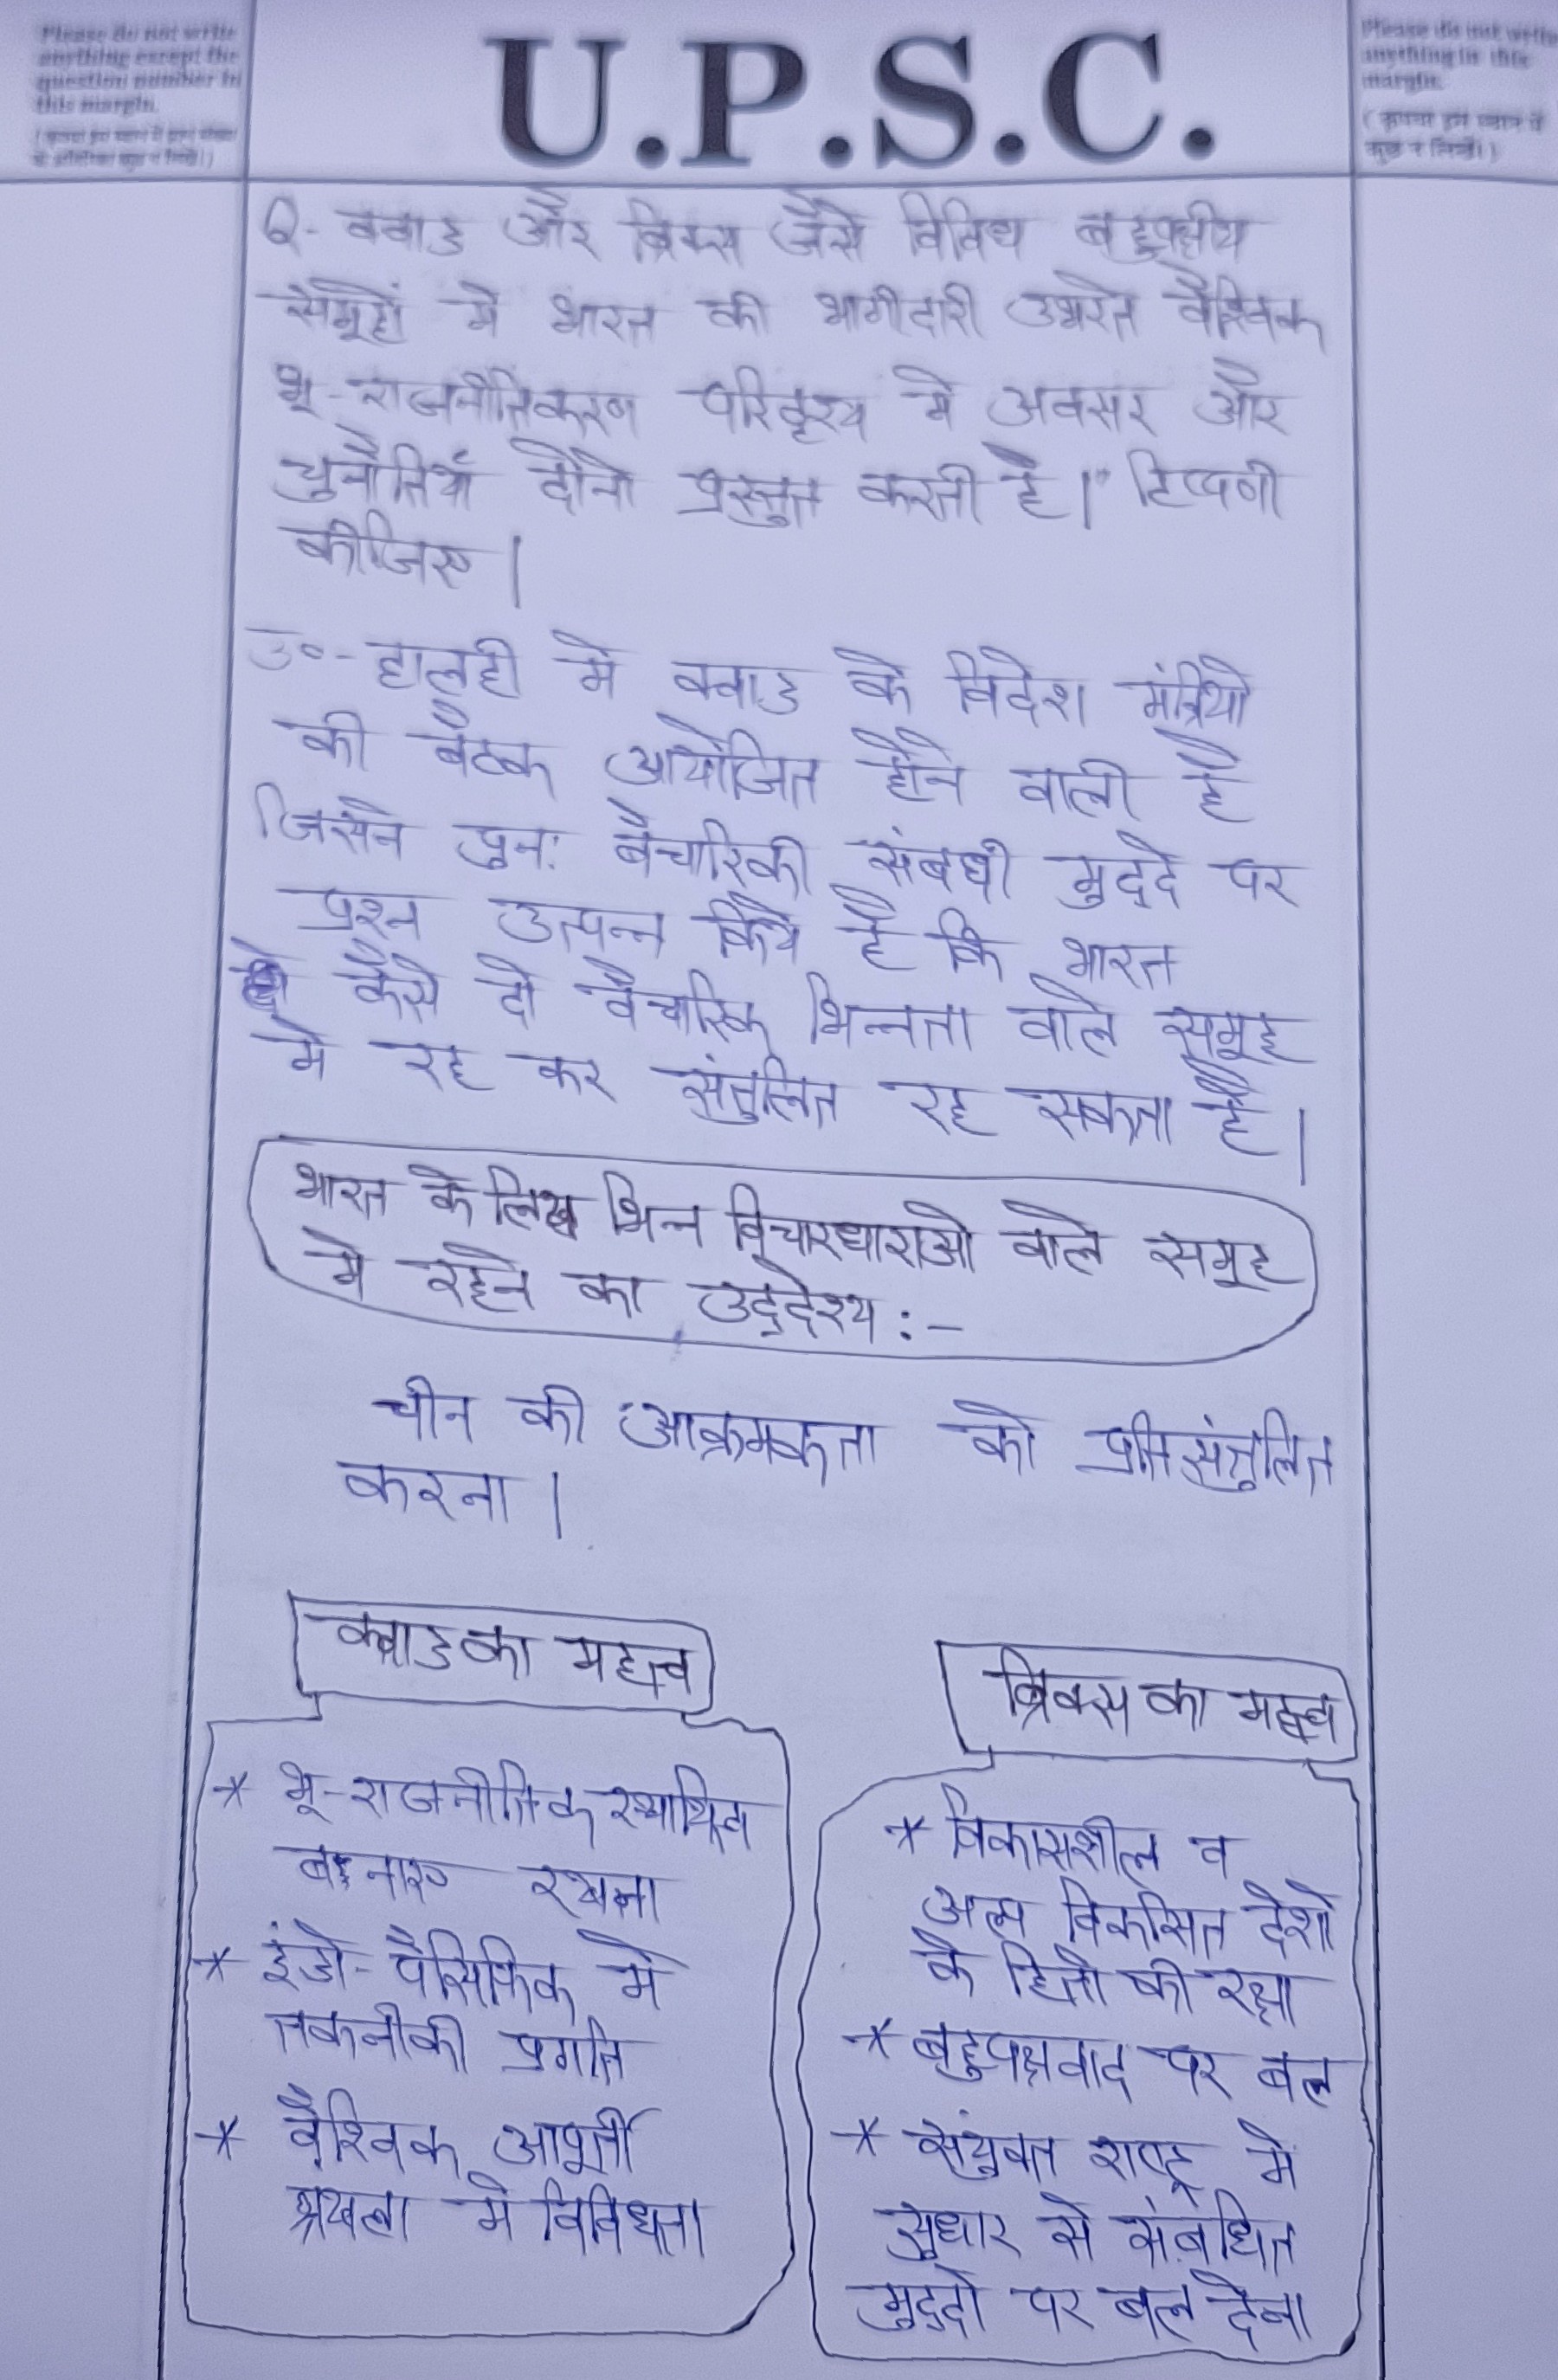 Please do not write
anything except the
question number in
this margin.
U.P.S.C.
Please do not write
anything in this
margin.
(कृपया इस स्थान में
कुछ न लिखें।)
Q- क्वाड और ब्रिक्स जैसे विविध बहुपक्षीय
समूहों मे भारत की भागीदारी उभरते वैश्विक
भू-राजनीतिकरण परिदृश्य मे अवसर और
चुनौतियाँ दोनो प्रस्तुत करती है।" टिप्पणी
कीजिए।
उ०- हालही मे क्वाड के विदेश मंत्रियो
की बैठक आयोजित होने वाली है
जिसने पुनः वैचारिकी संबधी मुद्दे पर
प्रश्न उत्पन्न किये है कि भारत
कैसे दो वैचारिक भिन्नता वाले समूह
मे रह कर संतुलित रह सकता है।
भारत के लिए भिन्न विचारधाराओ वाले समूह
मे रहने का उद्देश्य :-
चीन की आक्रमकता को प्रतिसंतुलित
करना।
क्वाड का महत्व
* भू-राजनीतिक स्थायित्व
बनाए रखना
* इंडो-पैसिफिक मे
तकनीकी प्रगति
* वैश्विक आपूर्ती
श्रखला मे विविधता
ब्रिक्स का महत्व
* विकासशील व
अल्प विकसित देशो
के हितो की रक्षा
* बहुपक्षवाद पर बल
* संयुक्त राष्ट्र मे
सुधार से संबधित
मुद्दो पर बल देना